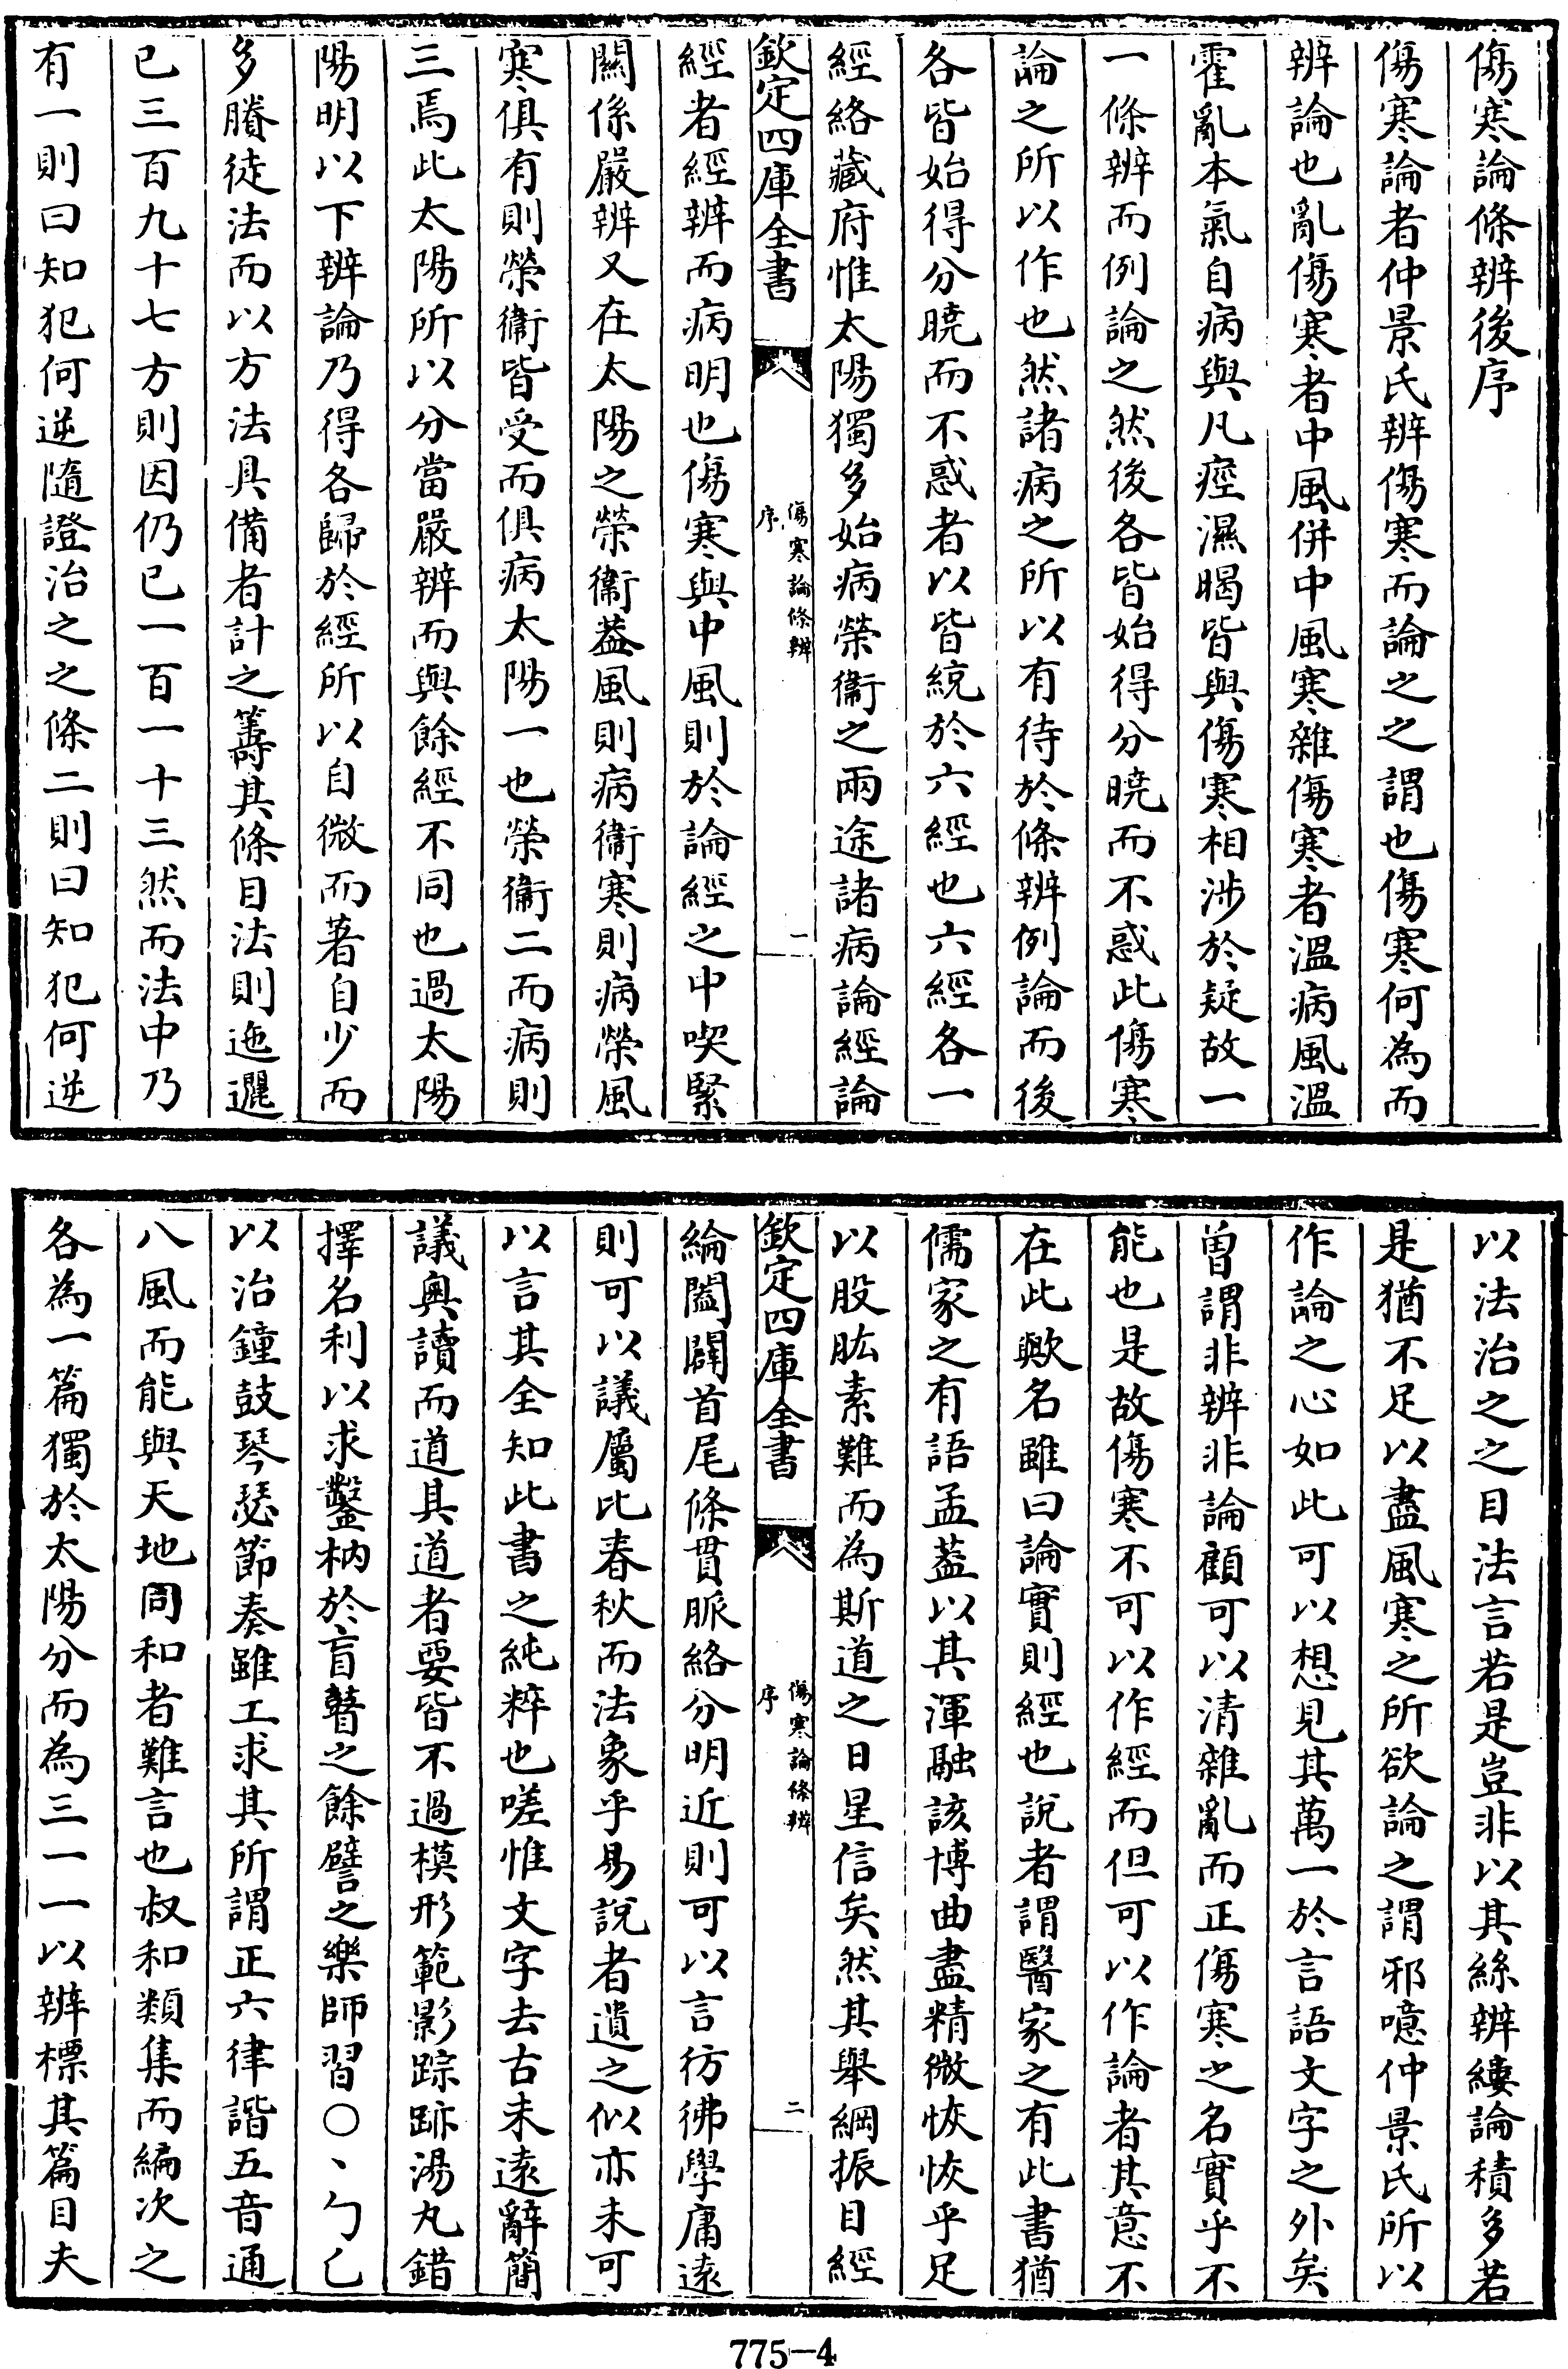 傷寒論條辨後序
傷寒論者仲景氏辨傷寒而論之之謂也傷寒何為而
辨論也亂傷寒者中風併中風寒雜傷寒者溫病風溫
霍亂本氣自病與凡痙濕暍皆與傷寒相涉於疑故一
一條辨而例論之然後各皆始得分曉而不惑此傷寒
論之所以作也然諸病之所以有待於條辨例論而後
各皆始得分曉而不惑者以皆統於六經也六經各一
經絡藏府惟太陽獨多始病榮衞之兩途諸病論經論
欽定四庫全書
傷寒論條辨
序
一
經者經辨而病明也傷寒與中風則於論經之中喫緊
關係嚴辨又在太陽之榮衞葢風則病衞寒則病榮風
寒俱有則榮衞皆受而俱病太陽一也榮衞二而病則
三焉此太陽所以分當嚴辨而與餘經不同也過太陽
陽明以下辨論乃得各歸於經所以自微而著自少而
多賸徒法而以方法具備者計之籌其條目法則迤邐
已三百九十七方則因仍已一百一十三然而法中乃
有一則曰知犯何逆隨證治之之條二則曰知犯何逆
以法治之之目法言若是豈非以其絲辨縷論積多若
是猶不足以盡風寒之所欲論之謂邪噫仲景氏所以
作論之心如此可以想見其萬一於言語文字之外矣
曾謂非辨非論顧可以清雜亂而正傷寒之名實乎不
能也是故傷寒不可以作經而但可以作論者其意不
在此歟名雖曰論實則經也說者謂醫家之有此書猶
儒家之有語孟葢以其渾融該博曲盡精微恢恢乎足
以股肱素難而為斯道之日星信矣然其舉綱振目經
欽定四庫全書
傷寒論條辨
序
二
綸闔闢首尾條貫脈絡分明近則可以言彷彿學庸遠
則可以議屬比春秋而法象乎易說者遺之似亦未可
以言其全知此書之純粹也嗟惟文字去古未遠辭簡
議奧讀而道其道者要皆不過模形範影踪跡湯丸錯
擇名利以求鑿枘於盲瞽之餘譬之樂師習〇丶勹乚
以治鐘鼓琴瑟節奏雖工求其所謂正六律諧五音通
八風而能與天地同和者難言也叔和類集而編次之
各為一篇獨於太陽分而為三一一以辨標其篇目夫
775-4